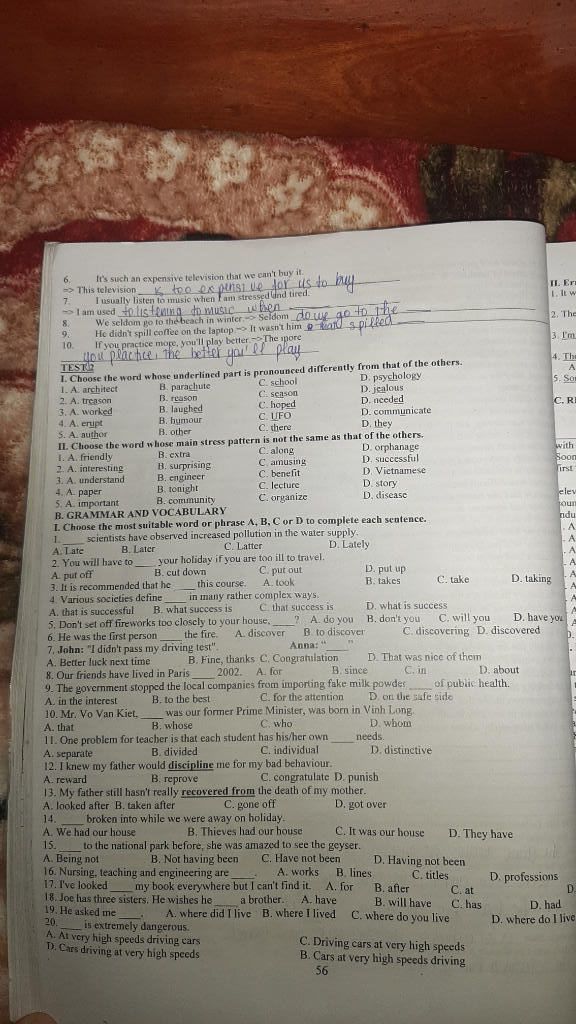 6. It's such an expensive television that we can't buy it.
=> This television is too expensive for us to buy
7. I usually listen to music when I am stressed and tired.
=> I am used to listening to music when
8. We seldom go to the beach in winter.=> Seldom do we go to the
9. He didn't spill coffee on the laptop.=> It wasn't him that spilled
10. If you practice more, you'll play better.=>The more
you practice, the better you'll play
TEST 2
I. Choose the word whose underlined part is pronounced differently from that of the others.
1. A. architect B. parachute C. school D. psychology
2. A. treason B. reason C. season D. jealous
3. A. worked B. laughed C. hoped D. needed
4. A. erupt B. humour C. UFO D. communicate
5. A. author B. other C. there D. they
II. Choose the word whose main stress pattern is not the same as that of the others.
1. A. friendly B. extra C. along D. orphanage
2. A. interesting B. surprising C. amusing D. successful
3. A. understand B. engineer C. benefit D. Vietnamese
4. A. paper B. tonight C. lecture D. story
5. A. important B. community C. organize D. disease
B. GRAMMAR AND VOCABULARY
I. Choose the most suitable word or phrase A, B, C or D to complete each sentence.
1. ____ scientists have observed increased pollution in the water supply.
A. Late B. Later C. Latter D. Lately
2. You will have to ____ your holiday if you are too ill to travel.
A. put off B. cut down C. put out D. put up
3. It is recommended that he ____ this course. A. took B. takes C. take D. taking
4. Various societies define ____ in many rather complex ways.
A. that is successful B. what success is C. that success is D. what is success
5. Don't set off fireworks too closely to your house, ____? A. do you B. don't you C. will you D. have you
6. He was the first person ____ the fire. A. discover B. to discover C. discovering D. discovered
7. John: "I didn't pass my driving test". Anna: "____"
A. Better luck next time B. Fine, thanks C. Congratulation D. That was nice of them
8. Our friends have lived in Paris ____ 2002. A. for B. since C. in D. about
9. The government stopped the local companies from importing fake milk powder ____ of public health.
A. in the interest B. to the best C. for the attention D. on the safe side
10. Mr. Vo Van Kiet, ____ was our former Prime Minister, was born in Vinh Long.
A. that B. whose C. who D. whom
11. One problem for teacher is that each student has his/her own ____ needs.
A. separate B. divided C. individual D. distinctive
12. I knew my father would discipline me for my bad behaviour.
A. reward B. reprove C. congratulate D. punish
13. My father still hasn't really recovered from the death of my mother.
A. looked after B. taken after C. gone off D. got over
14. ____ broken into while we were away on holiday.
A. We had our house B. Thieves had our house C. It was our house D. They have
15. ____ to the national park before, she was amazed to see the geyser.
A. Being not B. Not having been C. Have not been D. Having not been
16. Nursing, teaching and engineering are ____. A. works B. lines C. titles D. professions
17. I've looked ____ my book everywhere but I can't find it. A. for B. after C. at D.
18. Joe has three sisters. He wishes he ____ a brother. A. have B. will have C. has D. had
19. He asked me ____. A. where did I live B. where I lived C. where do you live D. where do I live
20. ____ is extremely dangerous.
A. At very high speeds driving cars C. Driving cars at very high speeds
D. Cars driving at very high speeds B. Cars at very high speeds driving
56
1. It w
2. The
3. I'm
4. The
C. R
with